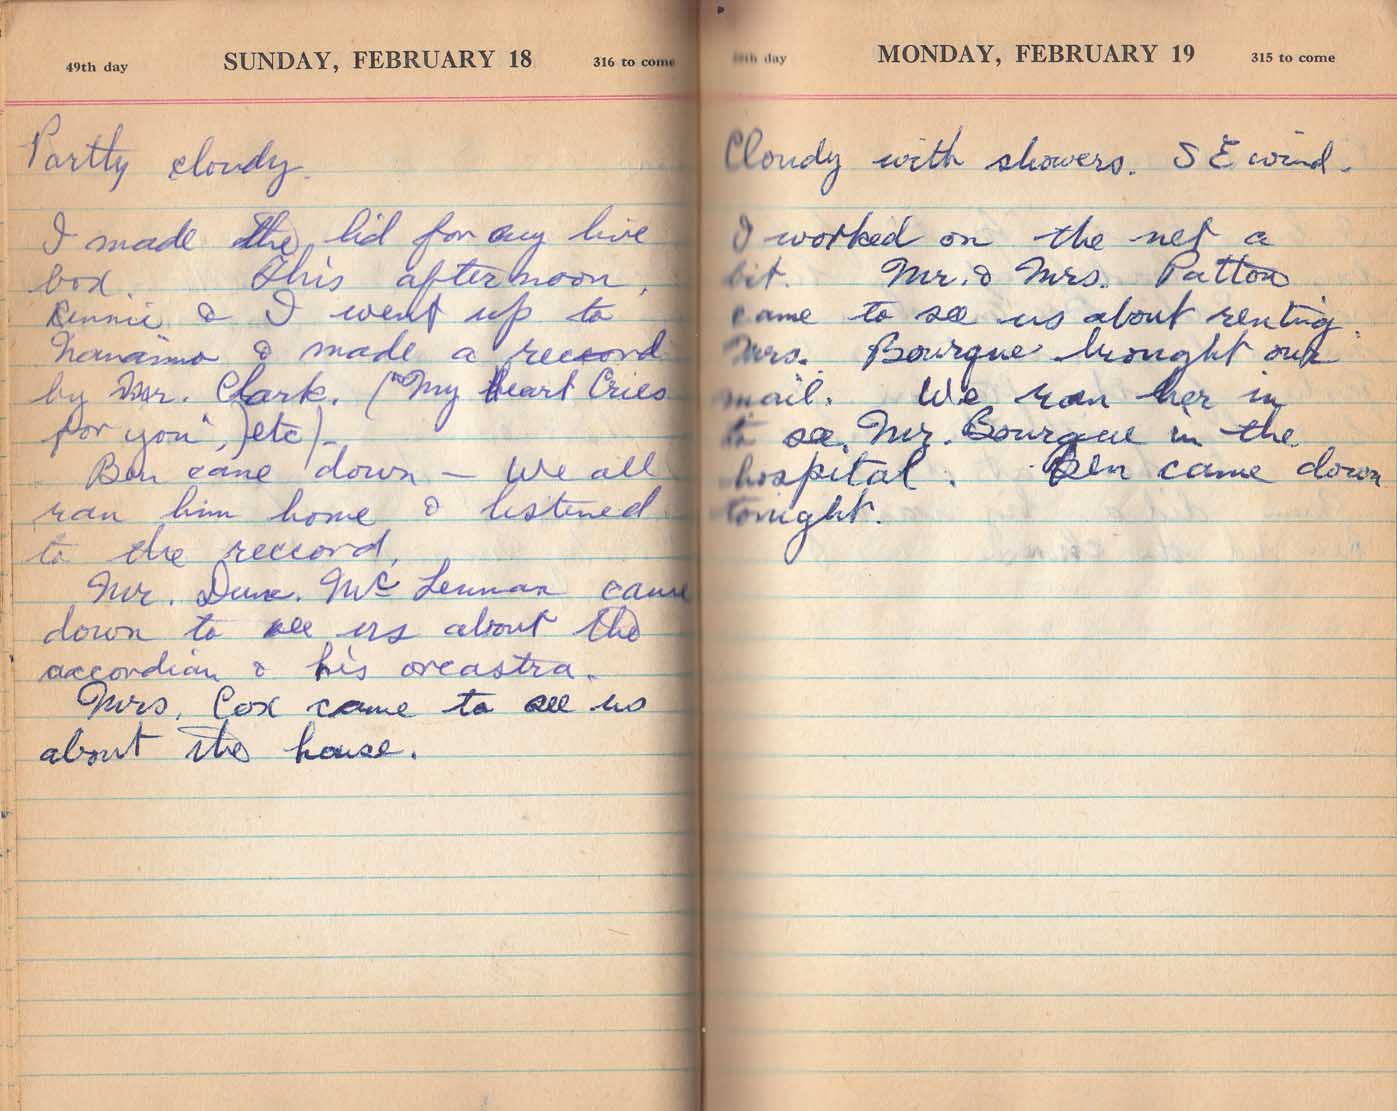 49th day SUNDAY, FEBRUARY 18 316 to come
Partly cloudy.
I made the lid for my live
box. This afternoon,
Rennie & I went up to
Nanaimo & made a reccord
by Mr. Clark. ("My Heart Cries
for you",) etc) -
Ben came down - We all
ran him home & listened
to the reccord.
Mr. Dunc. Mc Lennan came
down to see us about the
accordian & his orcastra.
Mrs. Cox came to see us
about the house.
50th day MONDAY, FEBRUARY 19 315 to come
Cloudy with showers. S E wind.
I worked on the net a
bit. Mr. & Mrs. Patton
came to see us about renting.
Mrs. Bourque brought our
mail. We ran her in
to see Mr. Bourque in the
hospital. Ben came down
tonight.